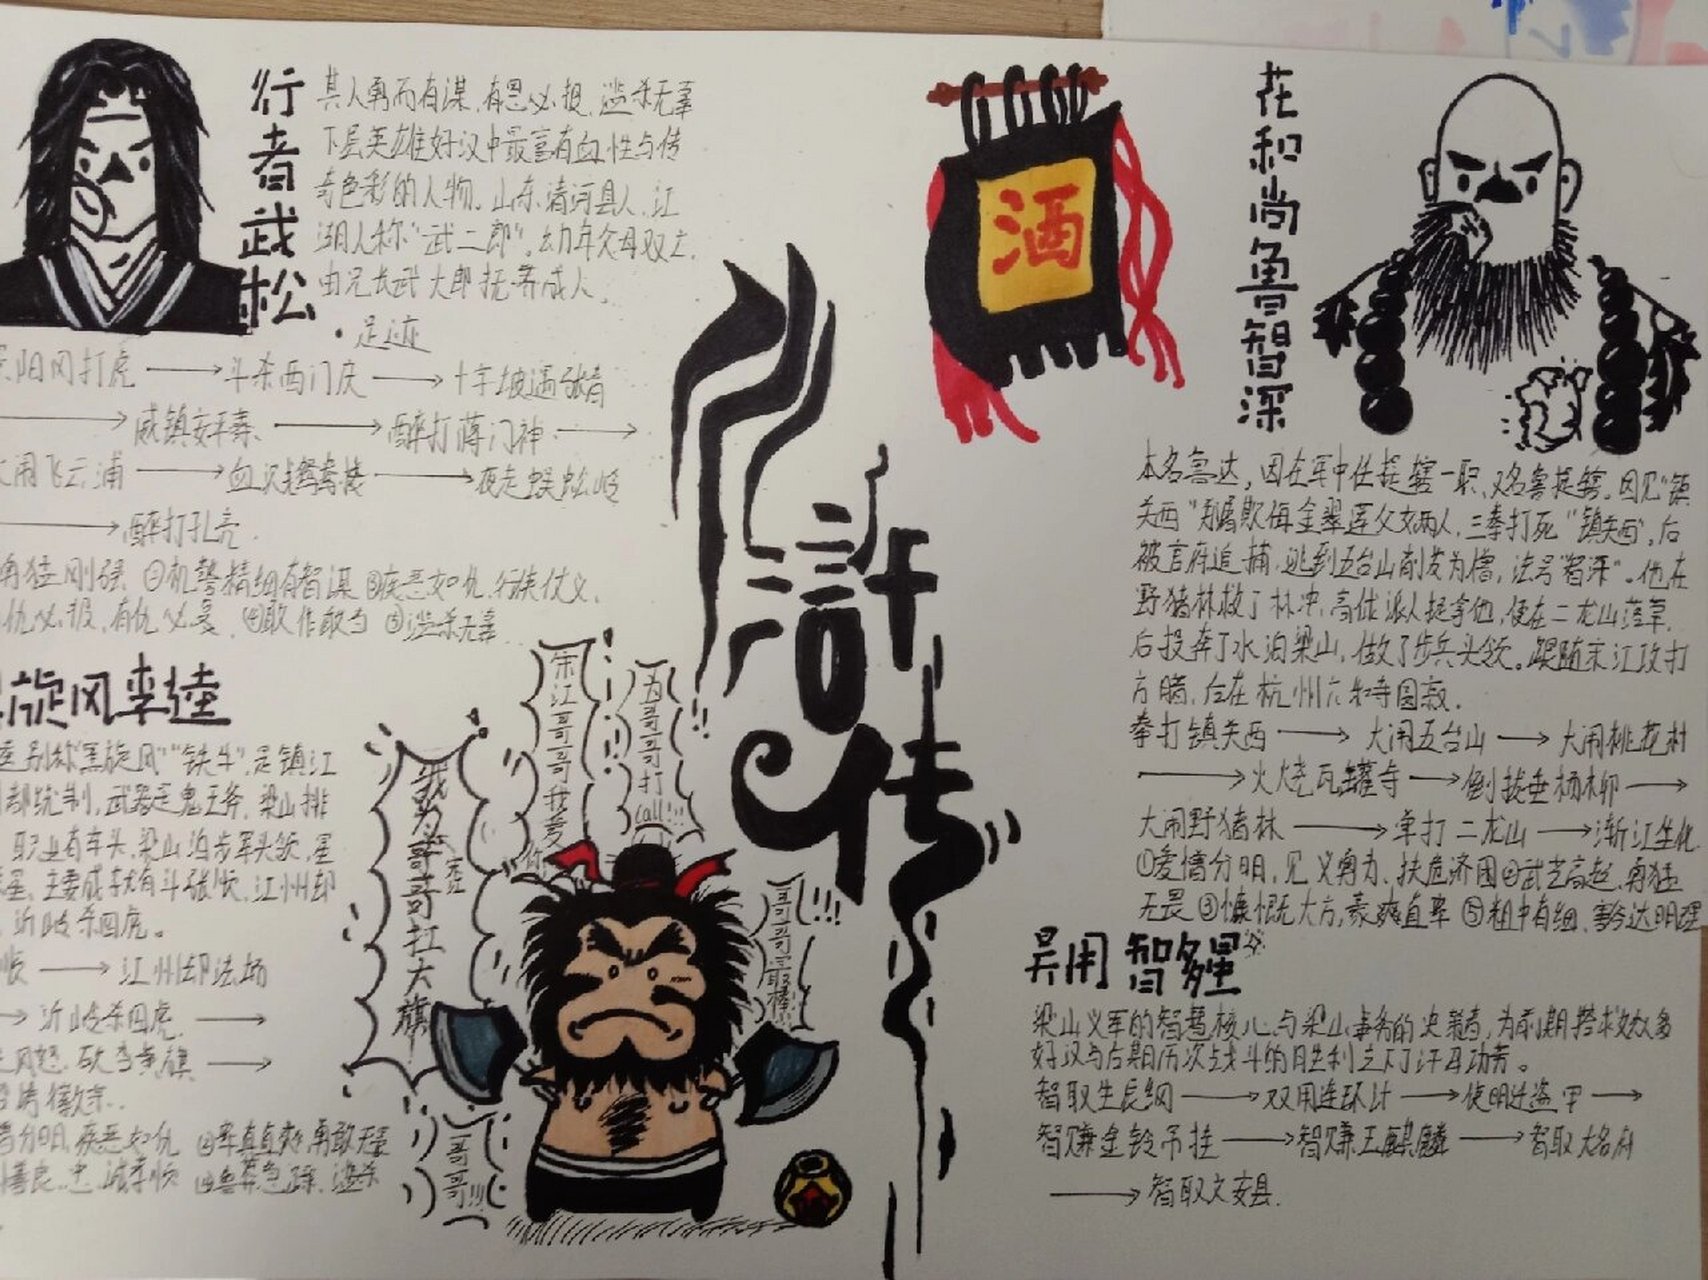 行者武松
其人勇而有谋,有恩必报,滥杀无辜
下层英雄好汉中最富有血性与传
奇色彩的人物。山东清河县人,江
湖人称“武二郎”。幼年父母双亡,
由兄长武大郎抚养成人。
·足迹
阳冈打虎→斗杀西门庆→十字坡遇张青
→威镇安平寨→醉打蒋门神→
大闹飞云浦→血溅鸳鸯楼→夜走蜈蚣岭
→醉打孔亮
勇猛刚强 ②机警精细有智谋 ③疾恶如仇,行侠仗义,
仇必报,有仇必 ④敢作敢当 ⑤滥杀无辜
旋风李逵
逵别称“黑旋风”“铁牛”,是镇江
都统制,武器是鬼王斧,梁山排
职业有牢头、梁山泊步军头领,星
星。主要成就有斗张顺,江州却
沂岭杀四虎。
顺→江州却法场
→沂岭杀四虎→
风怒,砍当黄旗→
分明,疾恶如仇 ②率直真爽,勇敢无
善良,忠诚孝顺
水浒传
酒
宋江哥哥我爱你
为哥哥打call!!!
我为宋江哥哥扛大旗
哥哥最棒!!!
哥哥!!!
花和尚鲁智深
本名鲁达,因在军中任提辖一职,又名鲁提辖。因见“镇
关西”郑屠欺侮金翠莲父女两人,三拳打死“镇关西”,后
被官府追捕,逃到五台山削发为僧,法号“智深”。他在
野猪林救了林冲,高俅派人捉拿他,便在二龙山落草。
后投奔了水泊梁山,做了步兵头领。跟随宋江攻打
方腊,后在杭州六和寺圆寂。
拳打镇关西→大闹五台山→大闹桃花村
→火烧瓦罐寺→倒拔垂杨柳→
大闹野猪林→单打二龙山→浙江坐化
①爱憎分明,见义勇为、扶危济困②武艺高超,勇猛
无畏③慷慨大方,豪爽直率⑤粗中有细、豁达明理
吴用 智多星
梁山义军的智慧核心与梁山事务的决策者,为前期搭救众多
好汉与后期历次战斗的胜利立下了汗马功劳。
智取生辰纲→双用连环计→使时迁盗甲→
智赚金铃吊挂→智赚玉麒麟→智取大名府
→智取文安县.